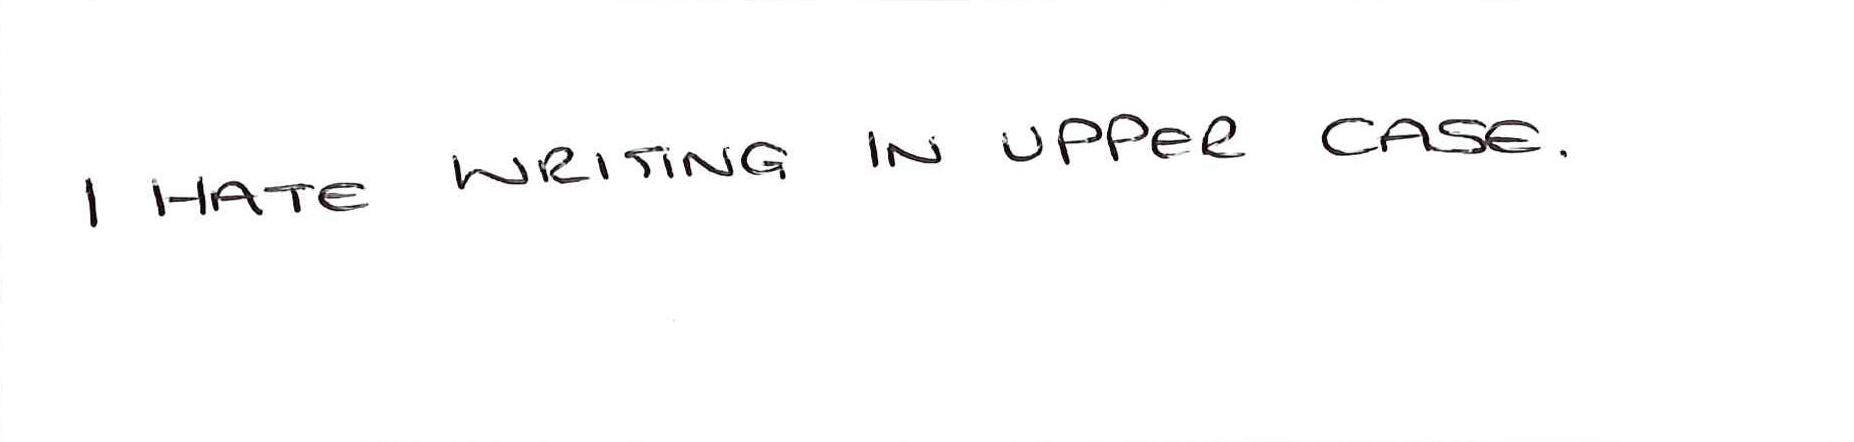 I HATE WRITING IN UPPER CASE.